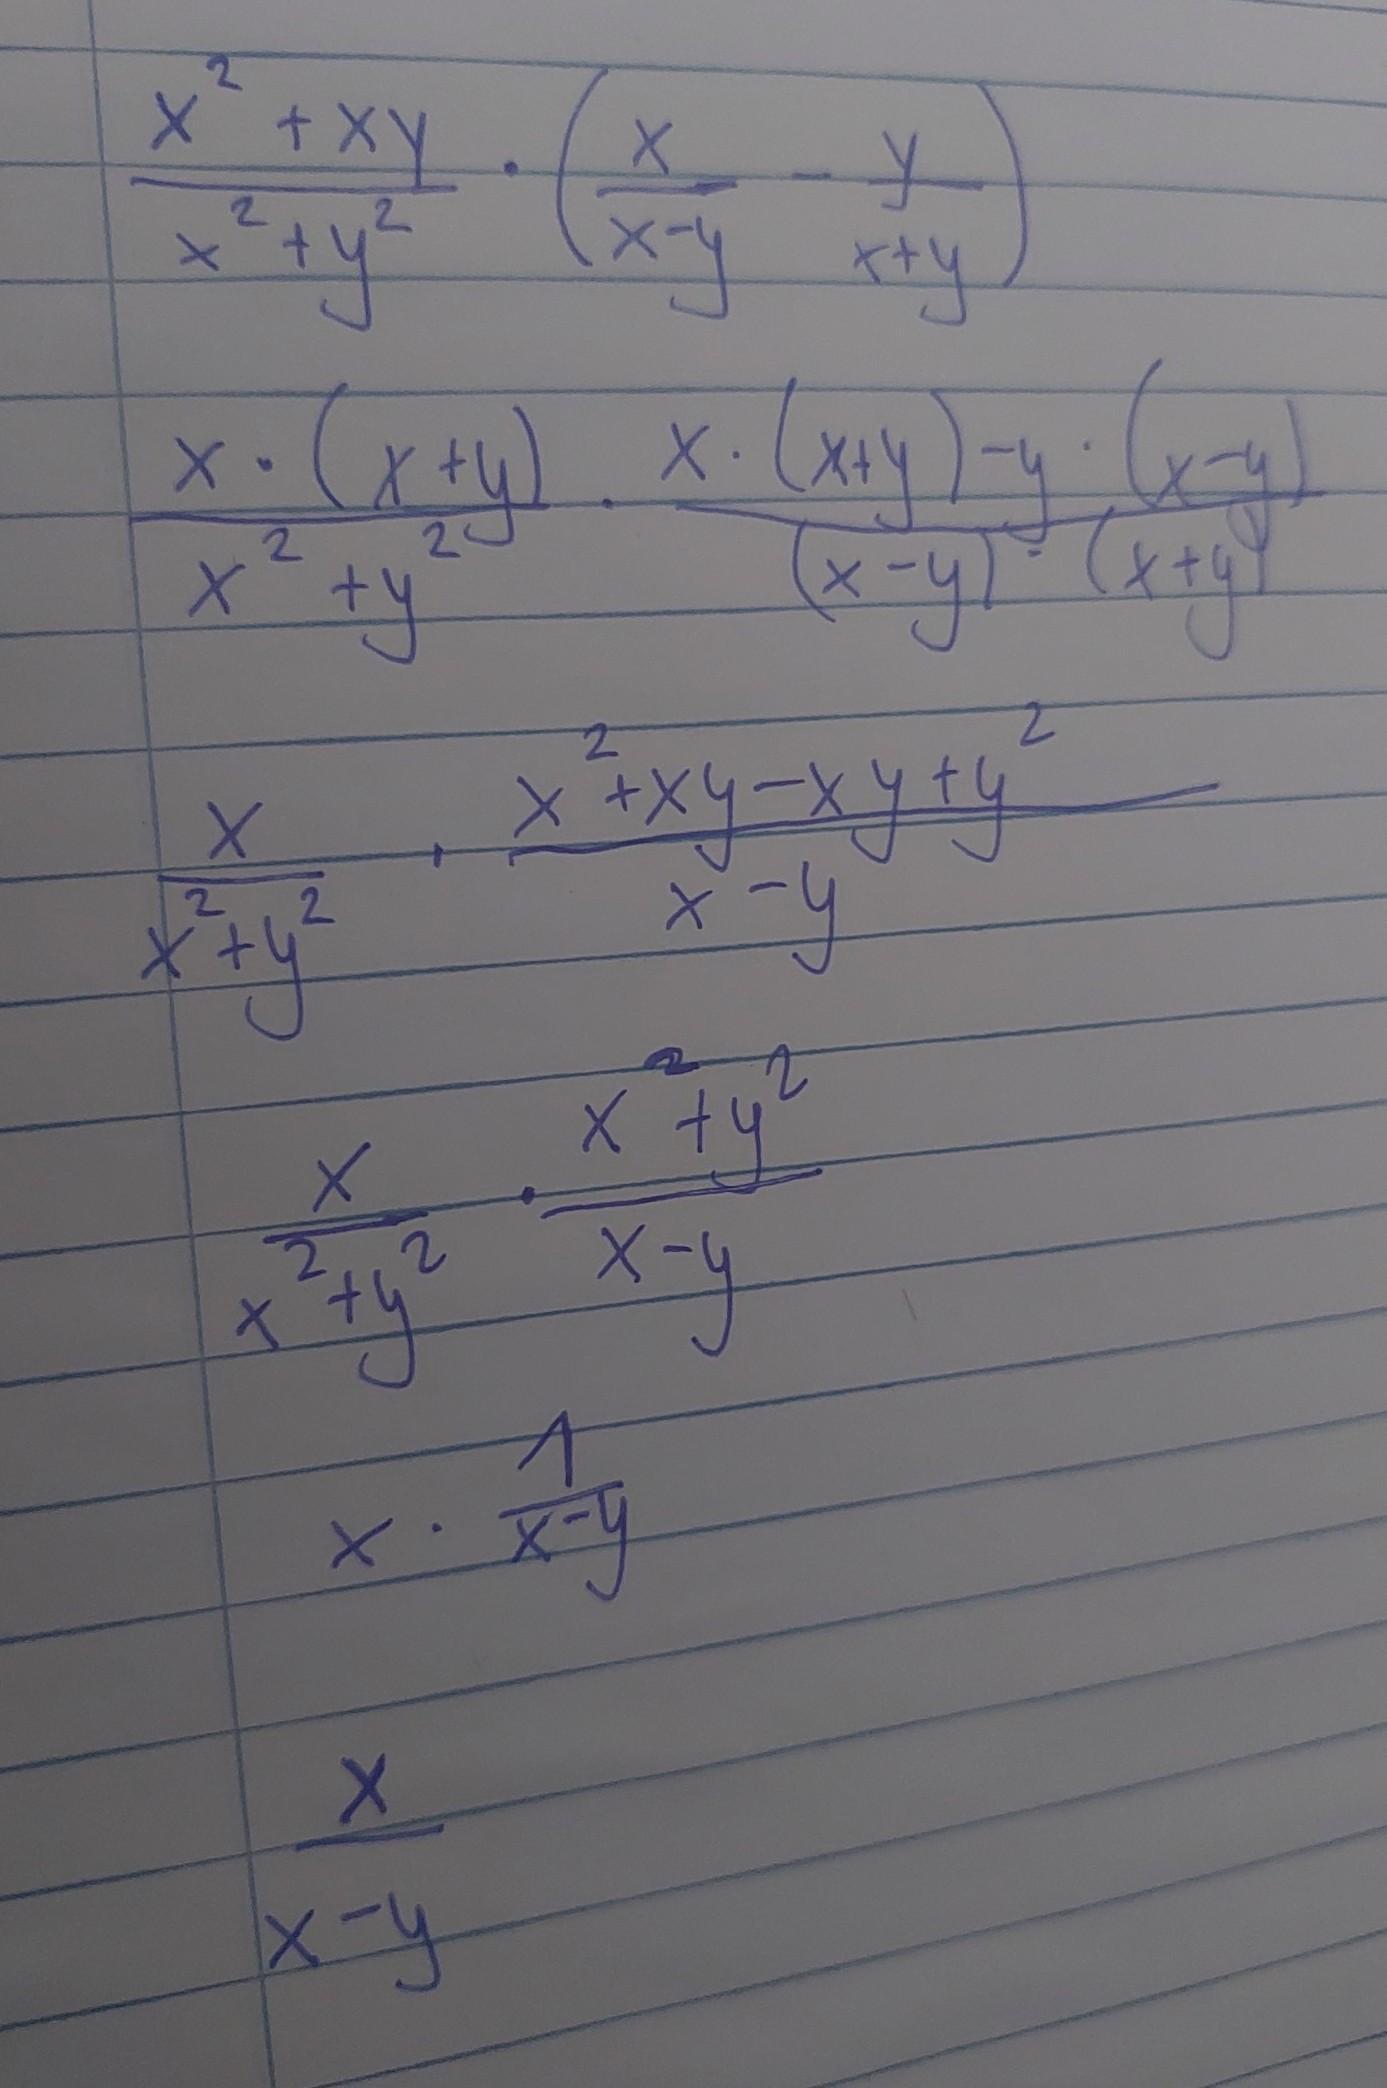 \frac{x^2 + xy}{x^2 + y^2} \cdot \left( \frac{x}{x-y} - \frac{y}{x+y} \right)
\frac{x \cdot (x+y)}{x^2 + y^2} \cdot \frac{x \cdot (x+y) - y \cdot (x-y)}{(x-y) \cdot (x+y)}
\frac{x}{x^2 + y^2} \cdot \frac{x^2 + xy - xy + y^2}{x-y}
\frac{x}{x^2 + y^2} \cdot \frac{x^2 + y^2}{x-y}
x \cdot \frac{1}{x-y}
\frac{x}{x-y}